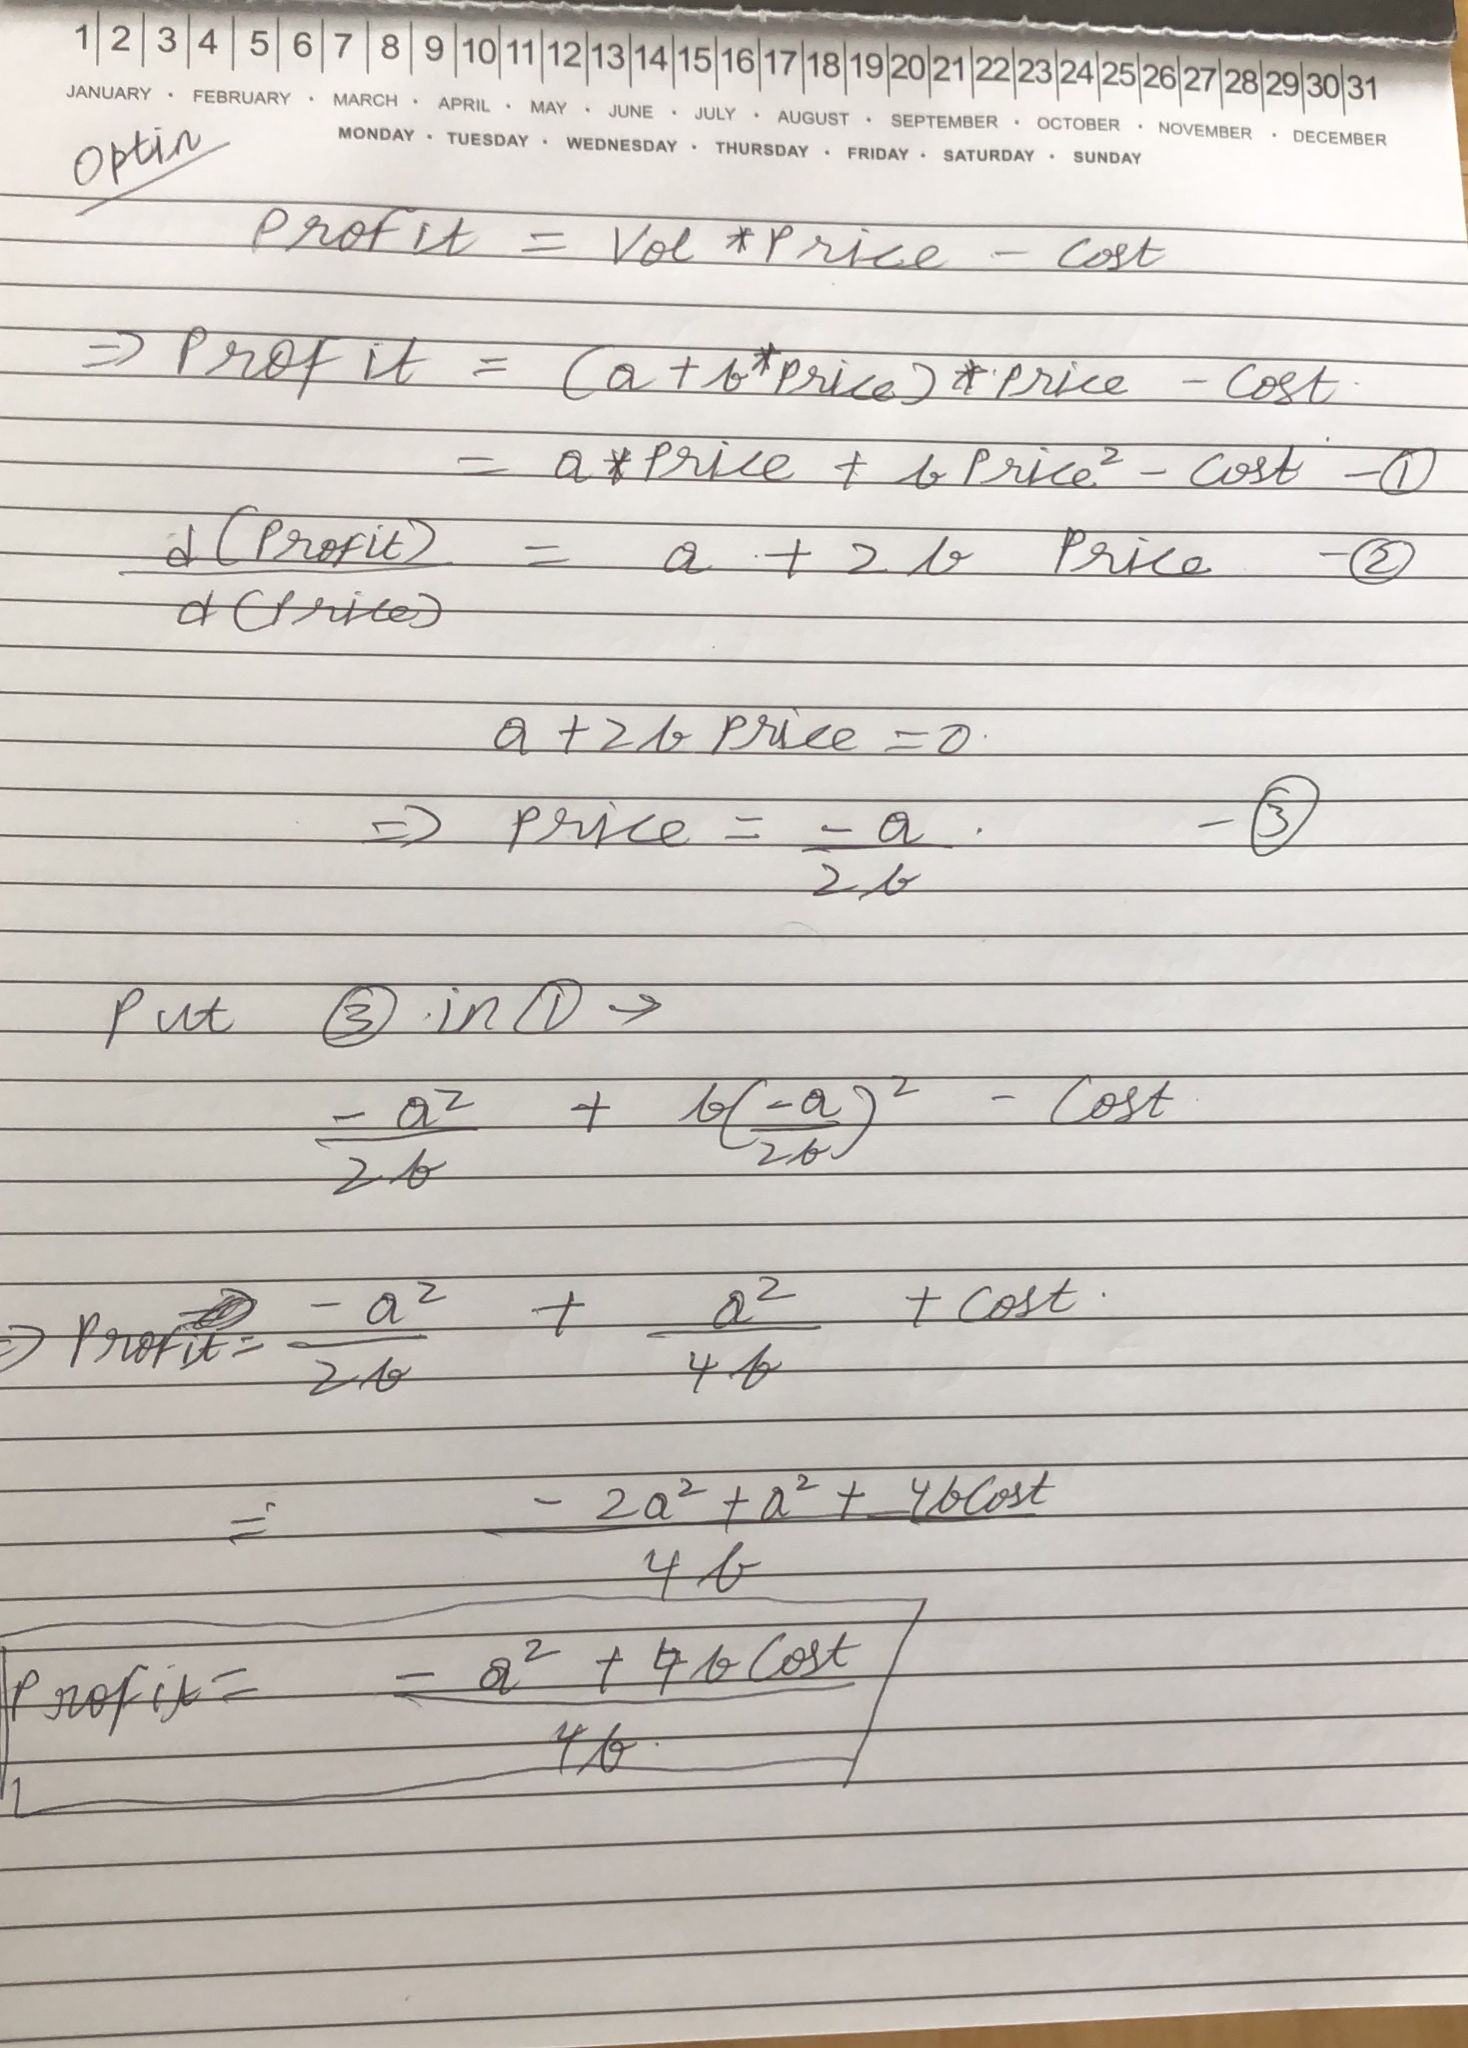 1|2|3|4|5|6|7|8|9|10|11|12|13|14|15|16|17|18|19|20|21|22|23|24|25|26|27|28|29|30|31
JANUARY · FEBRUARY · MARCH · APRIL · MAY · JUNE · JULY · AUGUST · SEPTEMBER · OCTOBER · NOVEMBER · DECEMBER
MONDAY · TUESDAY · WEDNESDAY · THURSDAY · FRIDAY · SATURDAY · SUNDAY
Optin
Profit = Vol * Price - Cost
=> Profit = (a + b*Price) * Price - Cost
= a * Price + b Price² - Cost - ①
d(Profit)/d(Price) = a + 2b Price - ②
a + 2b Price = 0
=> Price = -a/2b - ③
Put ③ in ① →
-a²/2b + b(-a/2b)² - Cost
=> Profit = -a²/2b + a²/4b + Cost
= -2a² + a² + 4bCost/4b
Profit = -a² + 4bCost/4b